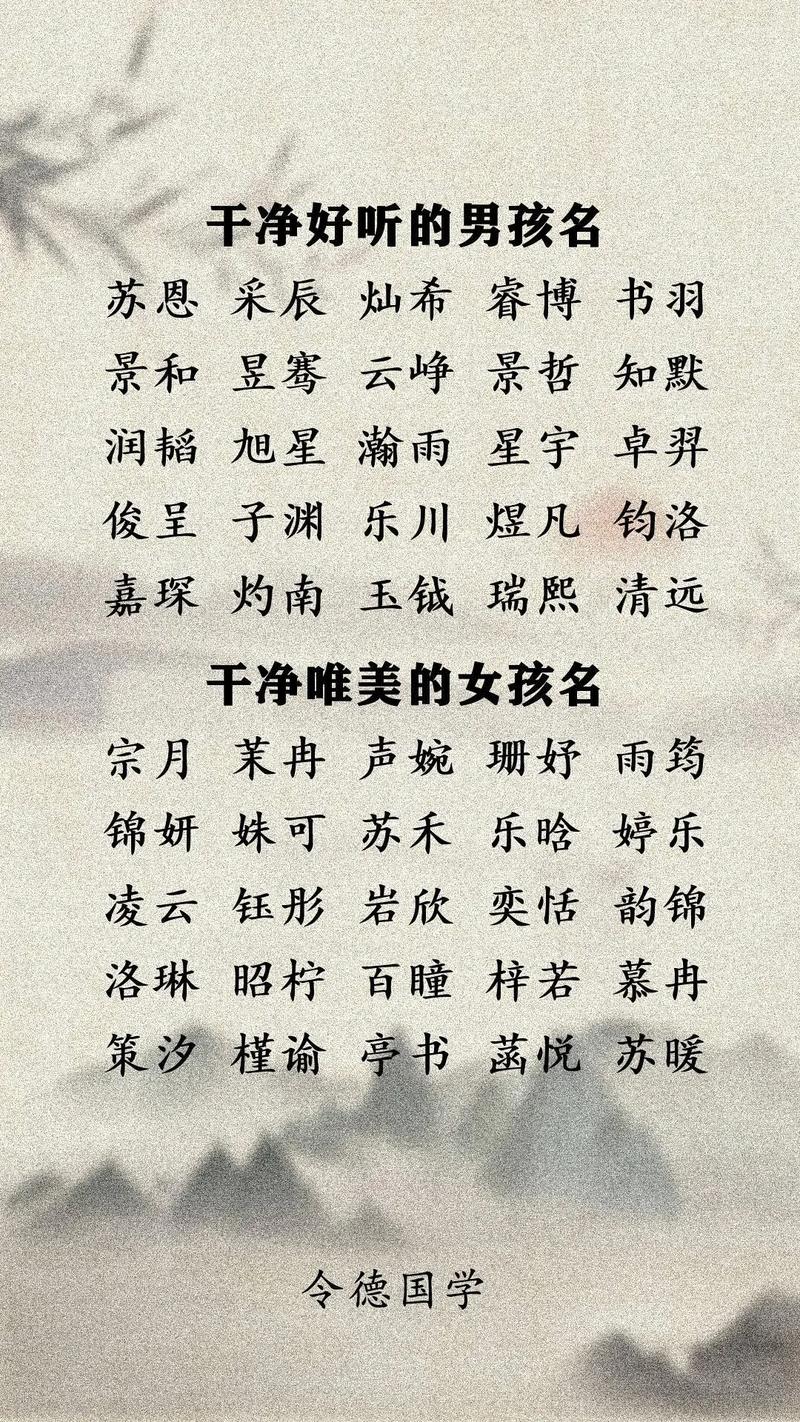 干净好听的男孩名
苏恩 采辰 灿希 睿博 书羽
景和 昱骞 云峥 景哲 知默
润韬 旭星 瀚雨 星宇 卓羿
俊呈 子渊 乐川 煜凡 钧洛
嘉琛 灼南 玉钺 瑞熙 清远
干净唯美的女孩名
宗月 茉冉 声婉 珊妤 雨筠
锦妍 姝可 苏禾 乐晗 婷乐
凌云 钰彤 岩欣 奕恬 韵锦
洛琳 昭柠 百瞳 梓若 慕冉
策汐 槿谕 亭书 菡悦 苏暖
令德国学